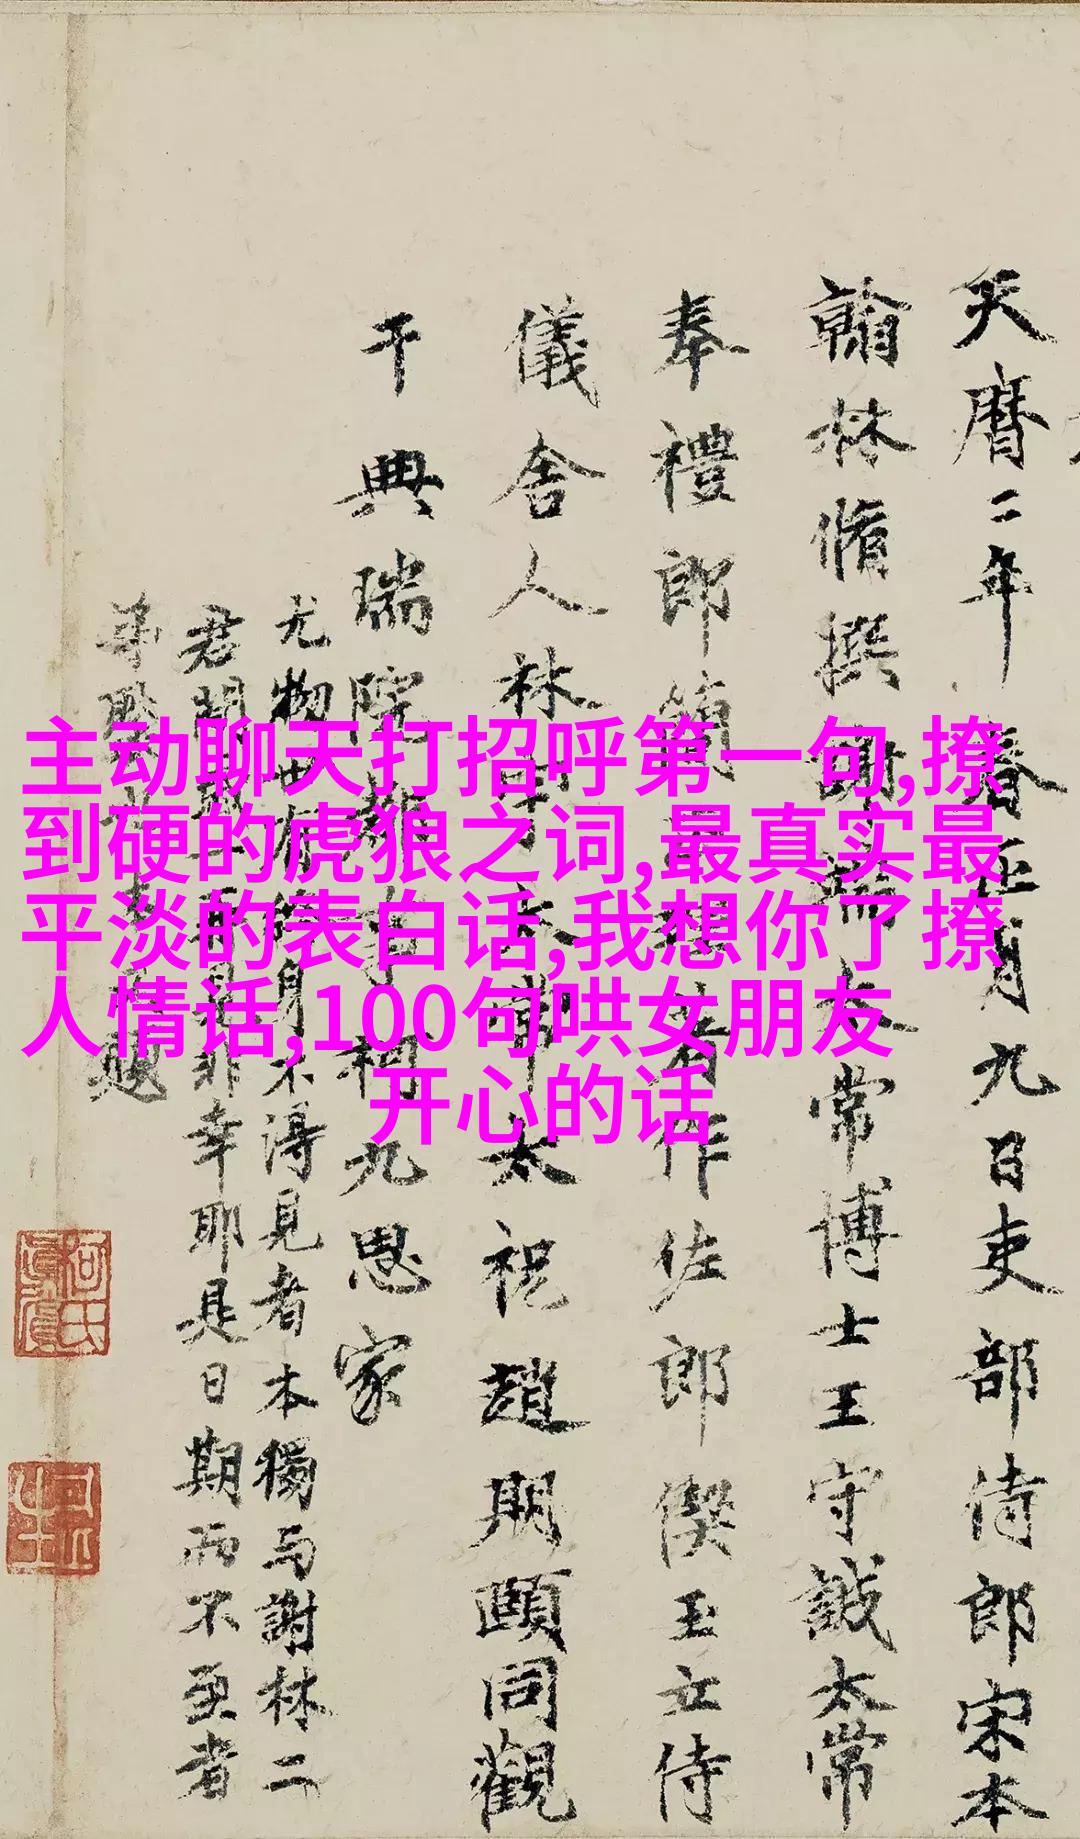 主动聊天打招呼第一句,撩
到硬的虎狼之词,最真实最
平淡的表白话,我想你了撩
人情话,100句哄女朋友
开心的话
天曆二年春正月九日吏部侍郎宋本
翰林脩撰謝端太常博士王守誠太常
奉禮郎簡著作佐郎偰玉立侍
儀舍人林宇太常太祝趙期頤同觀
于典瑞院都事柯九思家
尤物世身不得見者本獨与謝林二
君非幸耶是日期而不至者
題